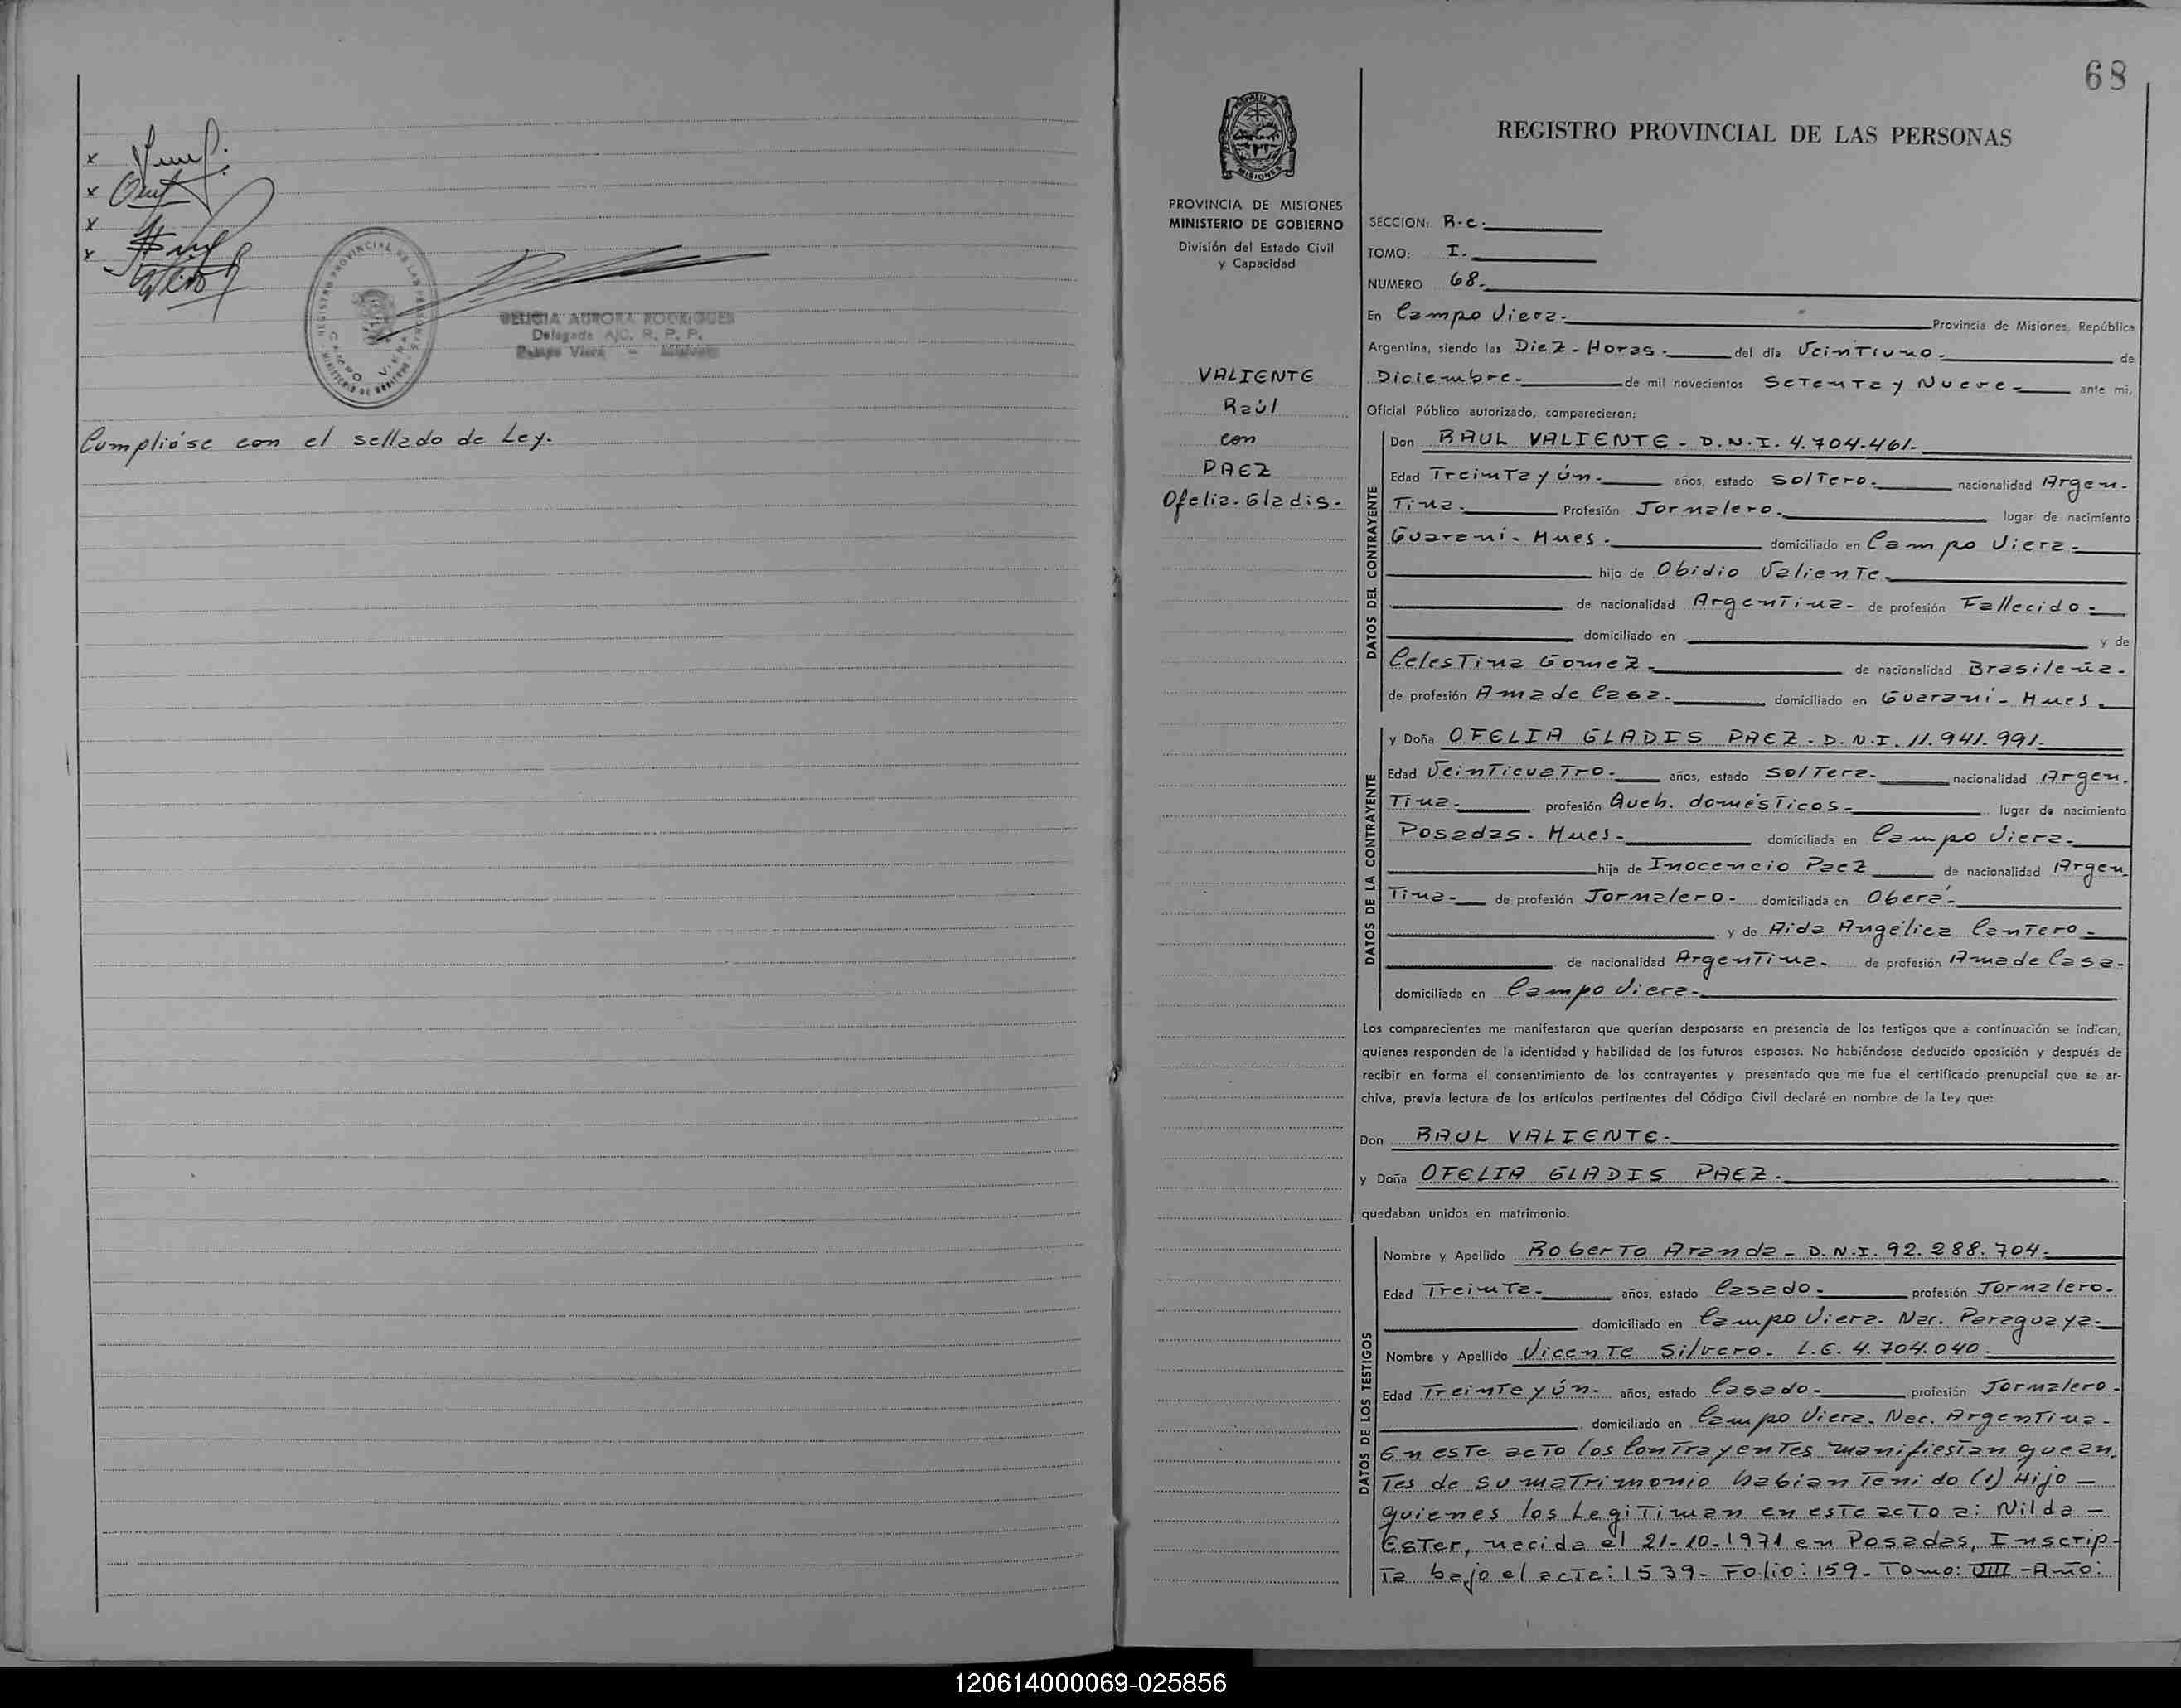 REGISTRO PROVINCIAL DE LAS
CAMPO VIERA
DELICIA AURORA RODRIGUES
Delegada A/C. R. P. P.
Campo Viera - Misiones
Cumplióse con el sellado de Ley.
68
PROVINCIA DE MISIONES
MINISTERIO DE GOBIERNO
División del Estado Civil
y Capacidad
VALIENTE
Raúl
con
PAEZ
Ofelia-Gladis-
REGISTRO PROVINCIAL DE LAS PERSONAS
SECCION: R-c.
TOMO: I.
NUMERO 68.
En Campo Viera. Provincia de Misiones, República
Argentina, siendo las Diez-Horas. del día Veintiuno. de
Diciembre. de mil novecientos Setenta y Nueve ante mi,
Oficial Público autorizado, comparecieron:
DATOS DEL CONTRAYENTE
Don RAUL VALIENTE - D.N.I. 4.704.461.
Edad Treinta y ún. años, estado Soltero. nacionalidad Argen-
Tina. Profesión Jornalero. lugar de nacimiento
Guarani-Mnes. domiciliado en Campo Viera.
hijo de Obidio Valiente.
de nacionalidad Argentina- de profesión Fallecido.
domiciliado en y de
Celestina Gomez. de nacionalidad Brasileña.
de profesión Ama de Casa. domiciliado en Guarani-Mnes.
DATOS DE LA CONTRAYENTE
y Doña OFELIA GLADIS PAEZ. D.N.I. 11.941.991.
Edad Veinticuatro. años, estado Soltera. nacionalidad Argen.
Tina. profesión Queh. domésticos. lugar de nacimiento
Posadas-Mnes. domiciliada en Campo Viera.
hija de Inocencio Paez de nacionalidad Argen
Tina. de profesión Jornalero- domiciliada en Oberá.
y de Aida Angélica Cantero.
de nacionalidad Argentina. de profesión Ama de Casa.
domiciliada en Campo Viera.
Los comparecientes me manifestaron que querían desposarse en presencia de los testigos que a continuación se indican,
quienes responden de la identidad y habilidad de los futuros esposos. No habiéndose deducido oposición y después de
recibir en forma el consentimiento de los contrayentes y presentado que me fue el certificado prenupcial que se ar-
chiva, previa lectura de los artículos pertinentes del Código Civil declaré en nombre de la Ley que:
Don RAUL VALIENTE.
y Doña OFELIA GLADIS PAEZ.
quedaban unidos en matrimonio.
DATOS DE LOS TESTIGOS
Nombre y Apellido Roberto Aranda - D.N.I. 92.288.704.
Edad Treinta. años, estado Casado. profesión Jornalero.
domiciliado en Campo Viera. Nac. Paraguaya.
Nombre y Apellido Vicente Silvero. L.E. 4.704.040.
Edad Treinte y ún. años, estado Casado. profesión Jornalero.
domiciliado en Campo Viera. Nac. Argentina.
En este acto los Contrayentes manifiestan que an
Tes de su matrimonio habian Tenido (1) Hijo -
quienes los Legitiman en este acto a: Nilda -
Ester, nacida el 21-10-1971 en Posadas, Inscrip-
Ta bajo el acta: 1539- Folio: 159- Tomo: VIII -Año:
120614000069-025856